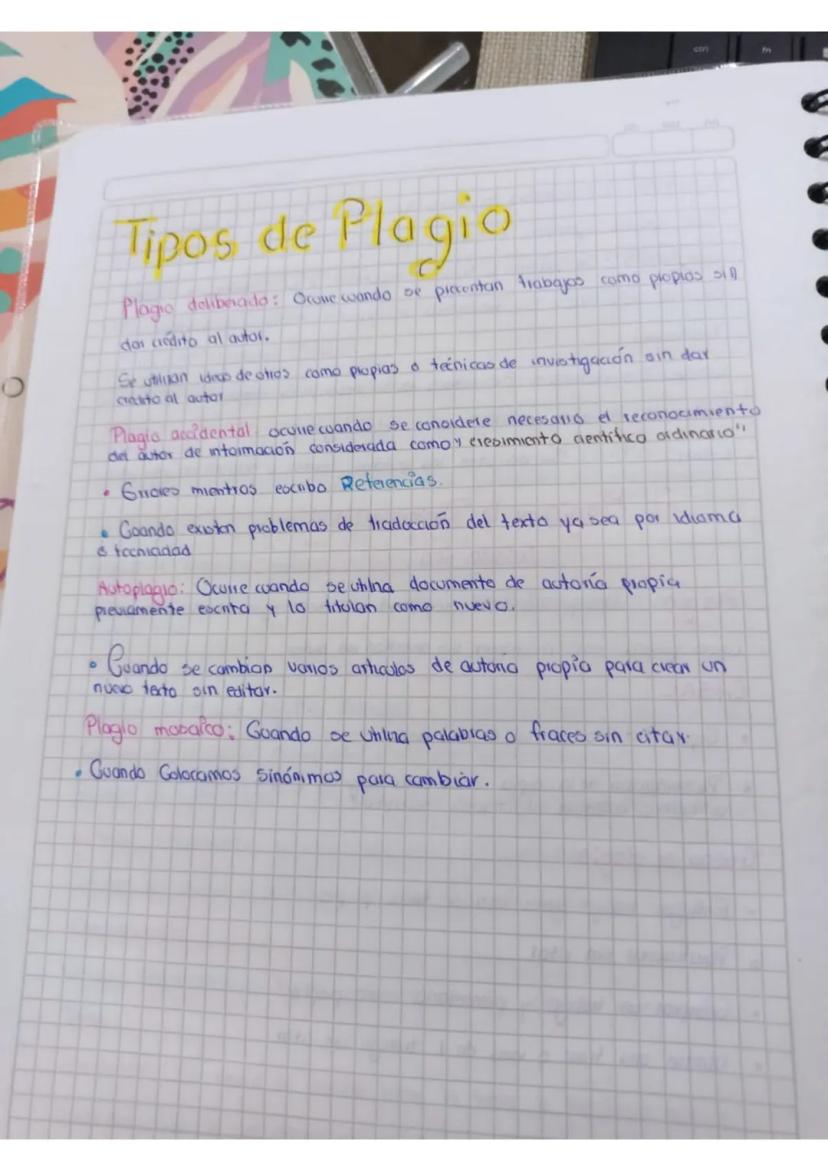 Tipos de Plagio
Plagio deliberado: Ocurre cuando se presentan trabajos como propios sin
dar crédito al autor.
Se utilizan ideas de otros como propias o técnicas de investigación sin dar
crédito al autor
Plagio accidental ocurre cuando se considere necesario el reconocimiento
del autor de información considerada como "crecimiento científico ordinario"
• Errores mientras escribo Referencias.
• Cuando existen problemas de traducción del texto ya sea por idioma
o tecnicidad
Autoplagio: Ocurre cuando se utiliza documento de autoría propia
previamente escrita y lo titulan como nuevo.
• Cuando se cambian varios articulos de autoria propia para crear un
nuevo texto sin editar.
Plagio mosaico: Cuando se utiliza palabras o fraces sin citar
• Cuando Colocamos sinónimos para cambiar.
ctrl
fn